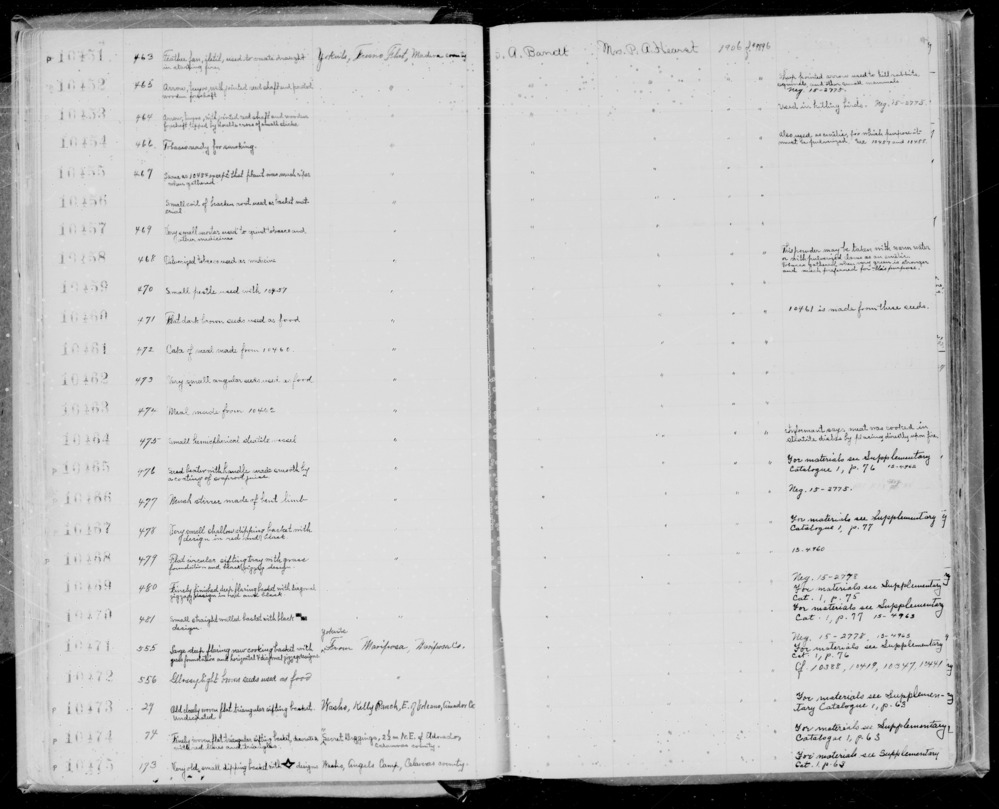 10451 463 Feather fan, used to create draught Yokuts, Fresno Flat, Madera county S. A. Barrett Mrs. P. A. Hearst 1906
in starting fire
10452 465 Arrow, with pointed shaft and Sharp pointed arrow used to kill rabbits
wooden foreshaft squirrels and other small mammals
Neg. 15-2775.
10453 464 Arrow, with pointed reed shaft and wooden Used in killing birds. Neg. 15-2775.
foreshaft tipped by double cross of small sticks
10454 466 Tobacco ready for smoking. " Also used as emetic, for which purpose it
must be pulverized. See 10457 and 10458.
10455 467 Same as 10454 except that plant was much riper "
when gathered
10456 Small coil of bracken root used as basket mat- "
erial
10457 469 Very small mortar used to grind tobacco and "
other medicines
10458 468 Pulverized tobacco used as medicine " This powder may be taken with warm water
or with pulverized lime as an emetic.
Tobacco gathered when very green is stronger
and much preferred for this purpose.
10459 470 Small pestle used with 10457 "
10460 471 Flat dark brown seeds used as food " 10461 is made from these seeds.
10461 472 Cake of meal made from 10460 "
10462 473 Very small angular seeds used as food "
10463 474 Meal made from 10462 "
10464 475 Small hemispherical steatite vessel " Informant says meat was cooked in
steatite dishes by placing directly upon fire
10465 476 Seed beater with handle made smooth by " For materials see Supplementary
a coating of soaproot juice Catalogue 1, p. 76 15-4962
10466 477 Mush stirrer made of bent limb " Neg. 15-2775.
10467 478 Very small shallow dipping basket with " For materials see Supplementary
design in red and black Catalogue 1, p. 77
10468 479 Flat circular sifting tray with grass " 15-4960
foundation and black zigzag design
10469 480 Finely finished deep flaring basket with diagonal " Neg. 15-2778
zigzag design in red and black For materials see Supplementary
Cat. 1, p. 75
10470 481 Small straight walled basket with black " For materials see Supplementary
design Cat. 1, p. 77 15-4963
10471 555 Large deep flaring raw cooking basket with Yokuts From Mariposa Mariposa Co. Neg. 15-2778, 15-4963
grass foundation and horizontal & diagonal zigzag designs For materials see Supplementary
Cat. 1, p. 76
Cf. 10388, 10419, 10347, 10441
10472 556 Glossy light brown seeds used as food "
10473 29 Old closely woven flat triangular sifting basket. Kelly Ranch, E. of Amador Co For materials see Supplemen-
Undecorated tary Catalogue 1, p. 63
10474 74 Finely woven flat triangular sifting basket, Garret Biggings, N.E. of For materials see Supplementary
with red lines and triangles. Calaveras county. Catalogue 1, p. 63
10475 173 Very old, small dipping basket with designs Angels Camp, Calaveras county. For materials see Supplementary
Cat. 1, p. 63